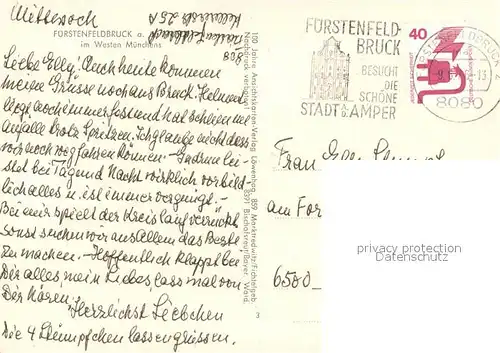 Mittwoch
FÜRSTENFELDBRUCK a. d.
im Westen Münchens
808
Liebe Elly! Auch heute kommen
meine Grüsse noch aus Bruck.
liege noch immer fest und hat schlimme
Anfälle trotz Spritzen. Ich glaube nicht dass
wir noch wegfahren können.
stet bei Tag und Nacht wirklich vorbild
lich alles u. ist immer vergnügt. -
Bei mir spielt der Kreislauf verrückt
sonst suchen wir aus Allem das Beste
zu machen. - Hoffentlich klappt bei
Dir alles, mein Liebes, lass mal von
Dir hören.
Herzlichst Liebchen
Die 4 Stümpfchen lassen grüssen.
100 Jahre Ansichtskarten-Verlag Löwenhag, 859 Marktredwitz/Fichtelgeb.
Nachdruck verboten 8371 Bischofsreut/Bayer. Wald.
3
FÜRSTENFELD-
BRUCK
BESUCHT
DIE
SCHÖNE
STADT A.D. AMPER
40
FÜRSTENFELDBRUCK
8080
Frau Elly
am For
6500
privacy protection
Datenschutz